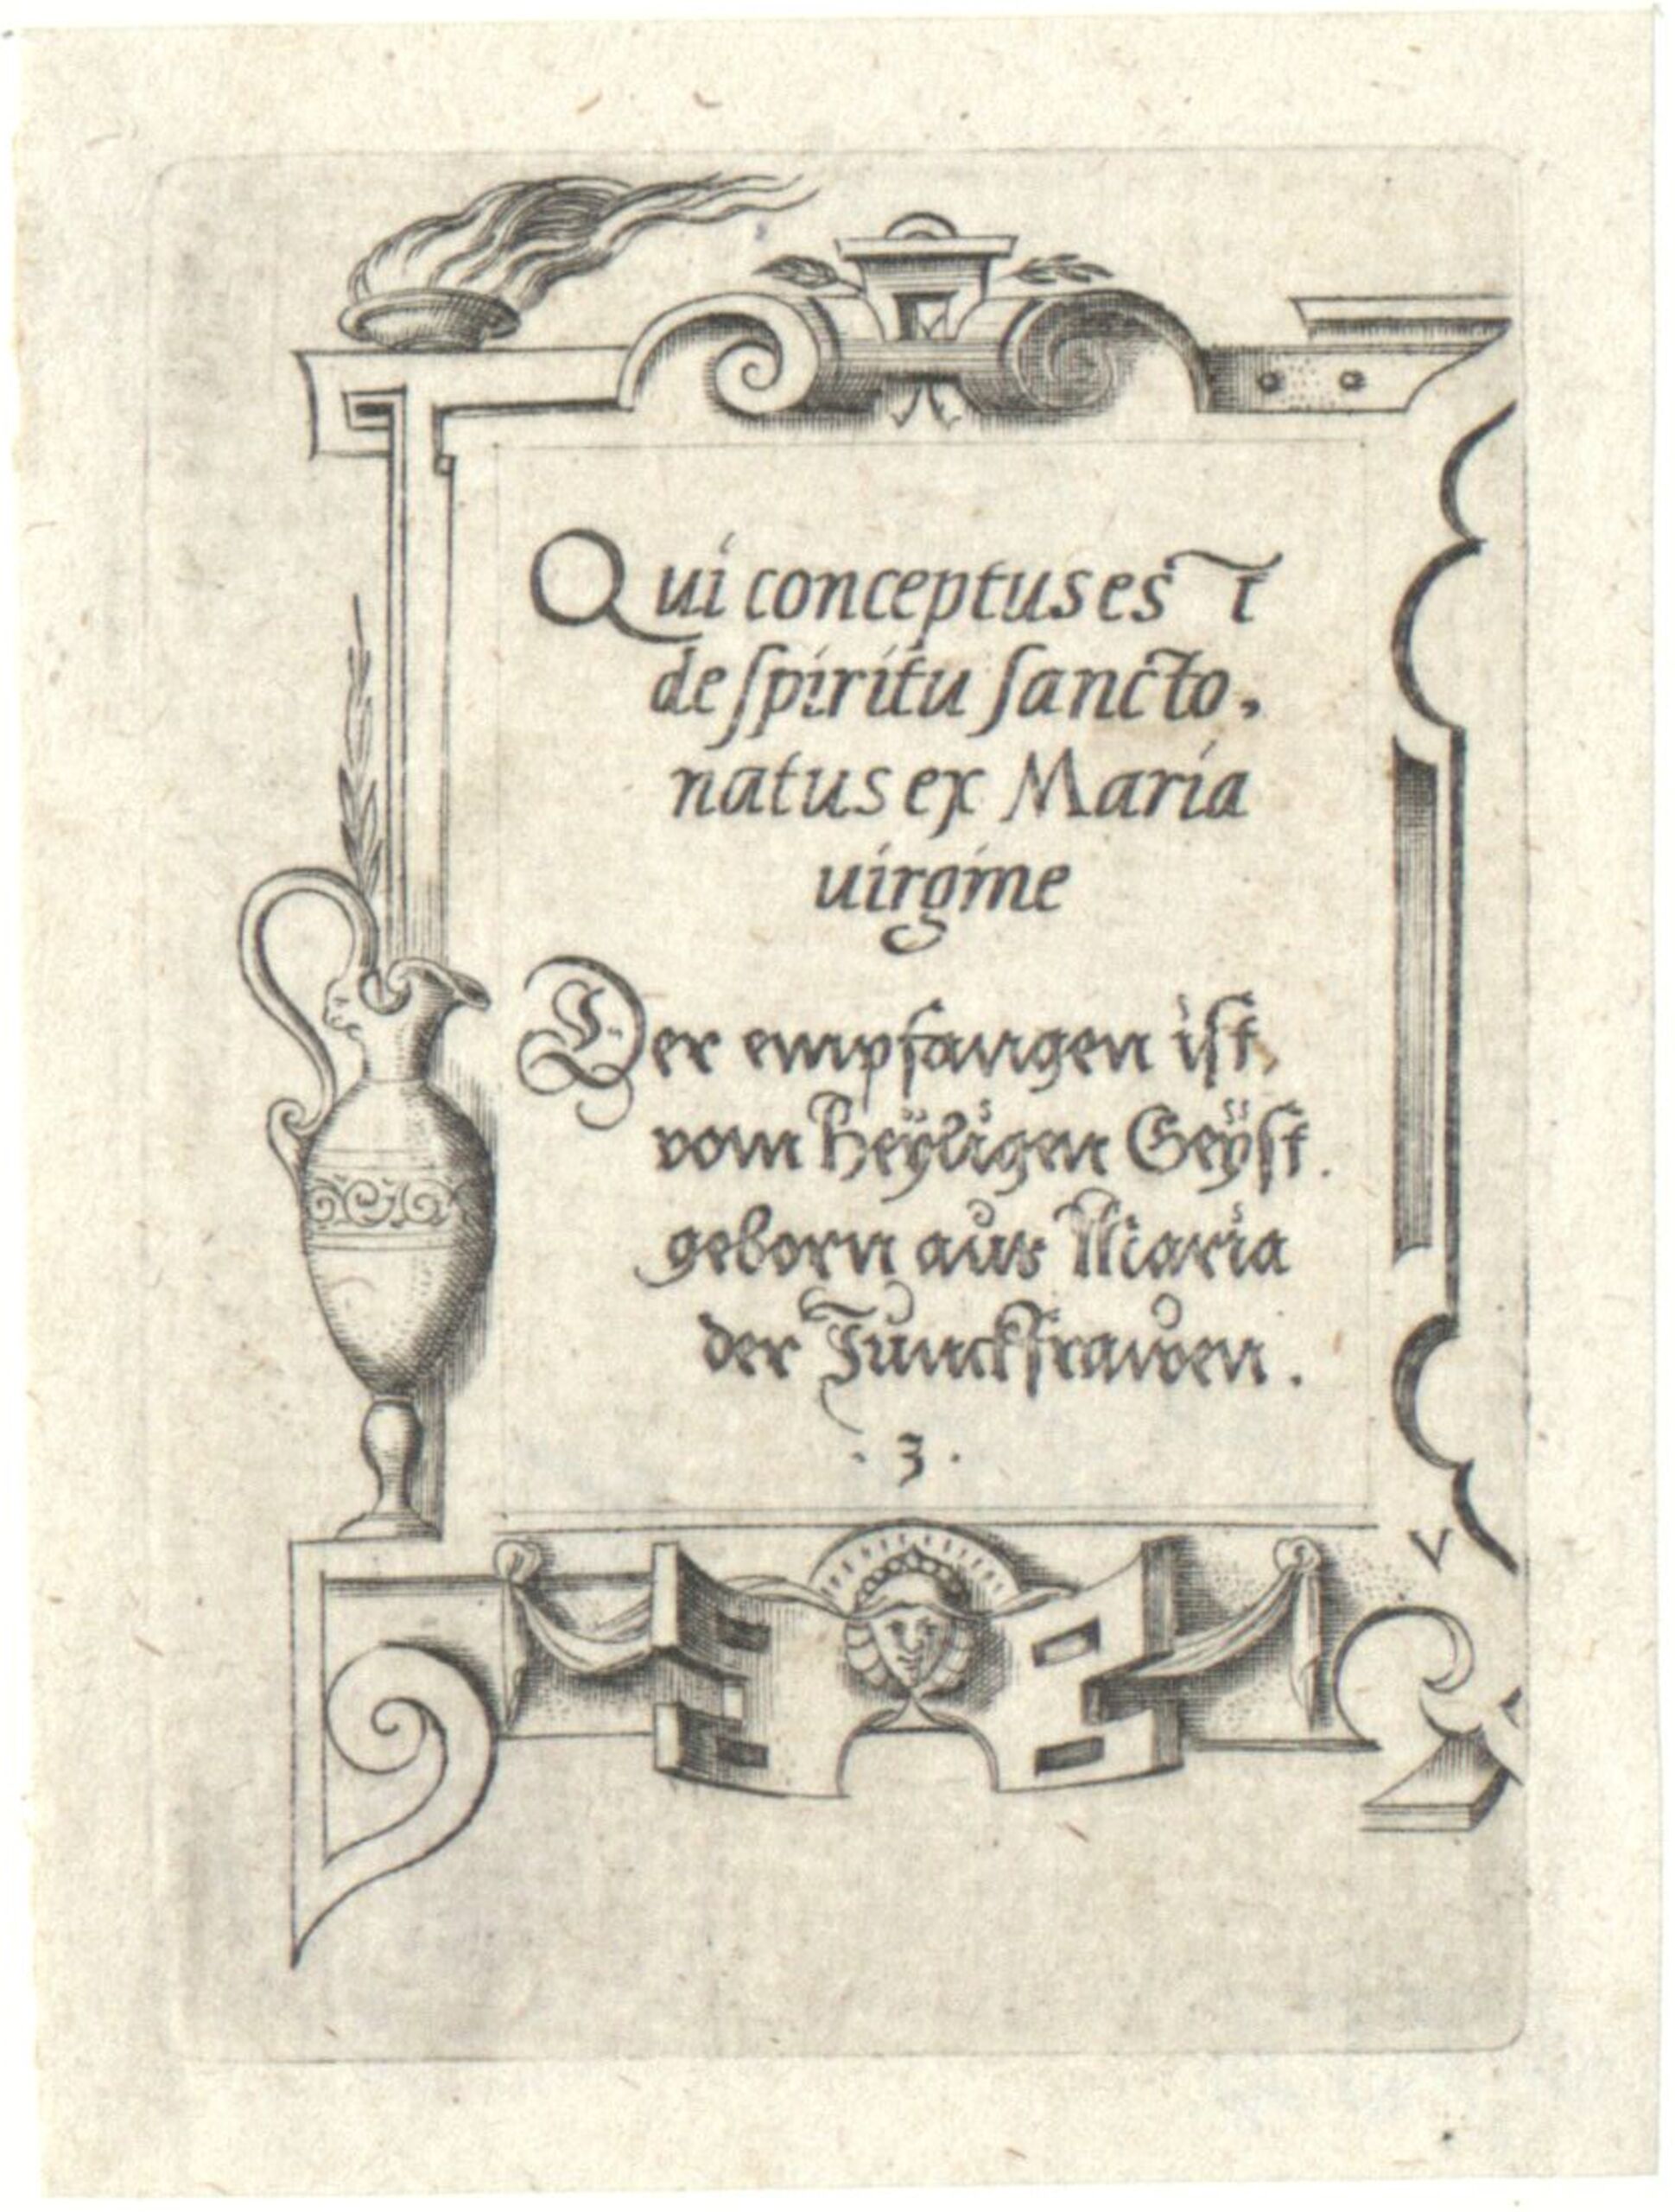 Qui conceptus es t
de ſpiritu ſancto,
natus ex Maria
uirgine
Der empfangen iſt,
vom Heÿligen Geÿſt.
geborn aus Maria
der Junckfrawen.
. 3 .
V